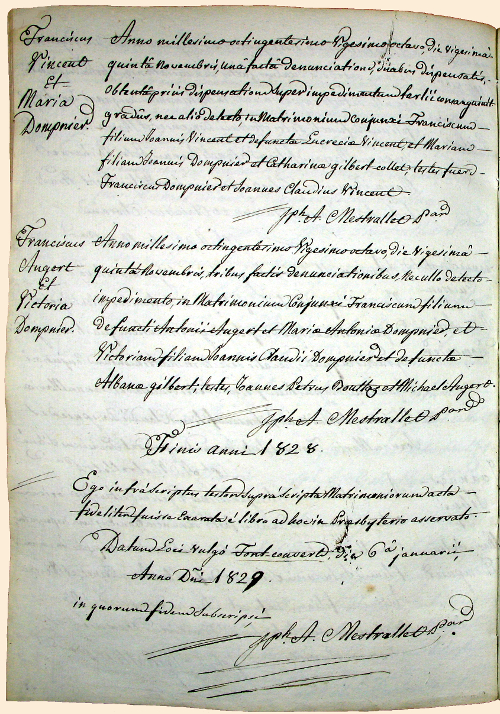 Franciscus
Vincent
Et
Maria
Dompnier.
Anno millesimo octingentesimo Vigesimo octavo, die vigesimâ
quintâ Novembris, unâ factâ denunciatione, duabus dispensatis,
obtentâ prius dispensatione Super impedimentum tertii consanguinit
gradus, nec alio detecto in Matrimonium Conjunxi Franciscum
filium Joannis Vincent et defunctæ Lucreciæ Vincent, et Mariam
filiam Joannis Dompnier et Catharinæ gilbert collet, testes fuere
Franciscus Dompnier et Joannes Claudius Vincent
Jph. A. Mestrallet
Franciscus
Augert
Et
Victoria
Dompnier.
Anno millesimo octingentesimo Vigesimo octavo, die Vigesimâ
quintâ Novembris, tribus factis denunciationibus, Nec ullo detecto
impedimento, in Matrimonium Conjunxi Franciscum filium
defuncti Antonii Augert et Mariæ Antoniæ Dompnier, et
Victoriam filiam Joannis Claudii Dompnier et defunctæ
Albanæ gilbert, testes, Joannes Petrus et Michael Augert.
Jph. A. Mestrallet
Finis anni 1828.
Ego infrà Scriptus testor Suprà Scripta Matrimoniorum acta
fideliter fuisse Exarata è libro ad hoc in Præsbyterio asservato
Datum Loci vulgò Font-couvert. die 6â januarii,
Anno Dni 1829
in quorum fidem Subscripsi
Jph. A. Mestrallet